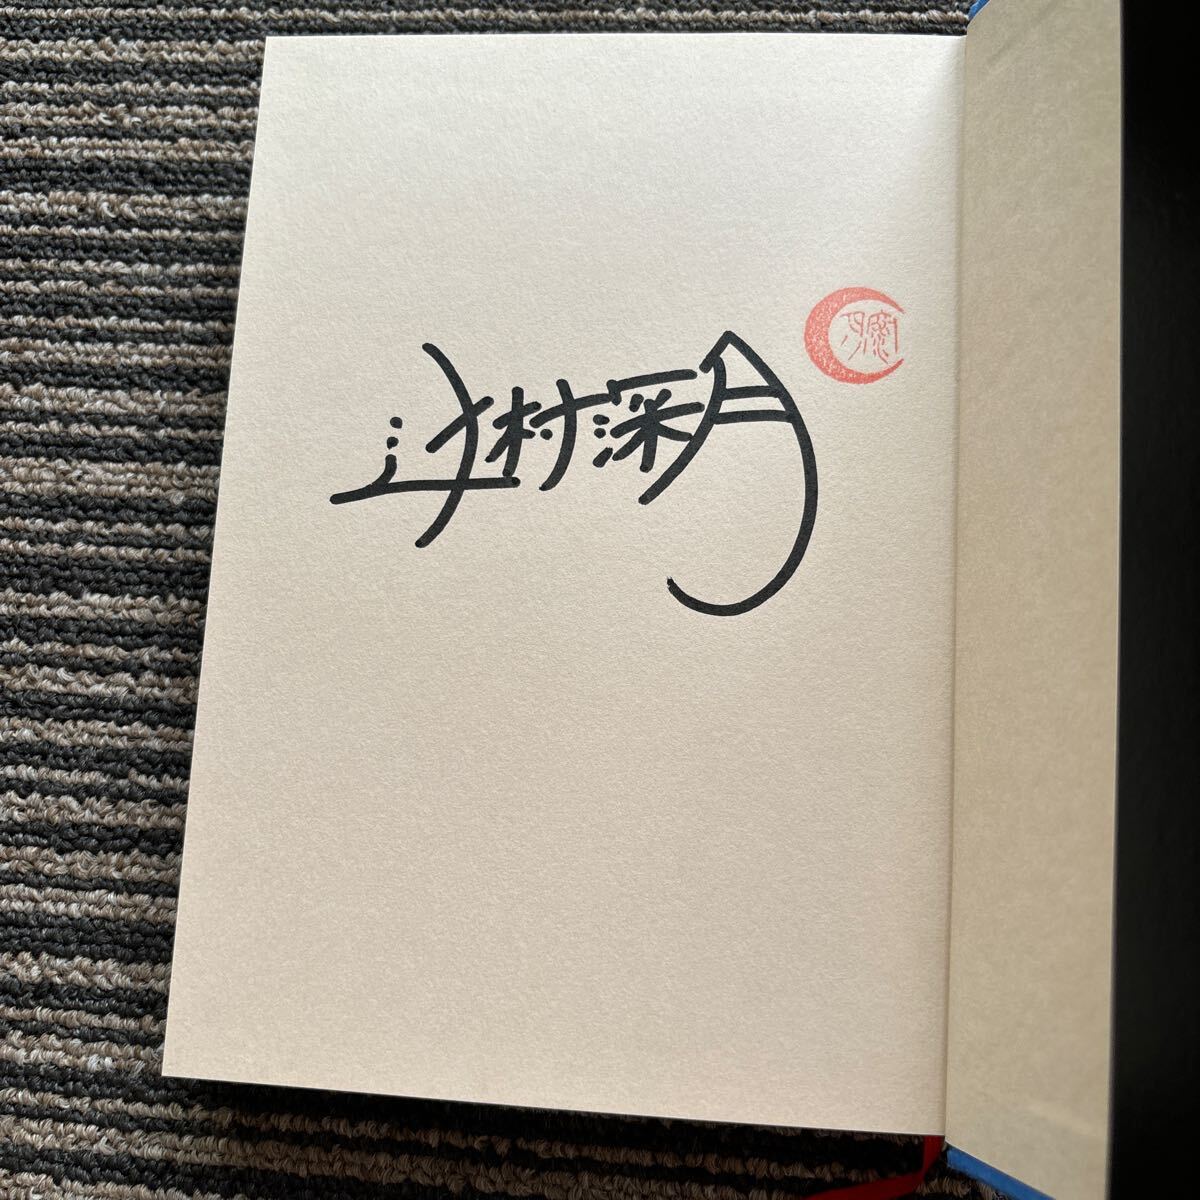 辻村深月